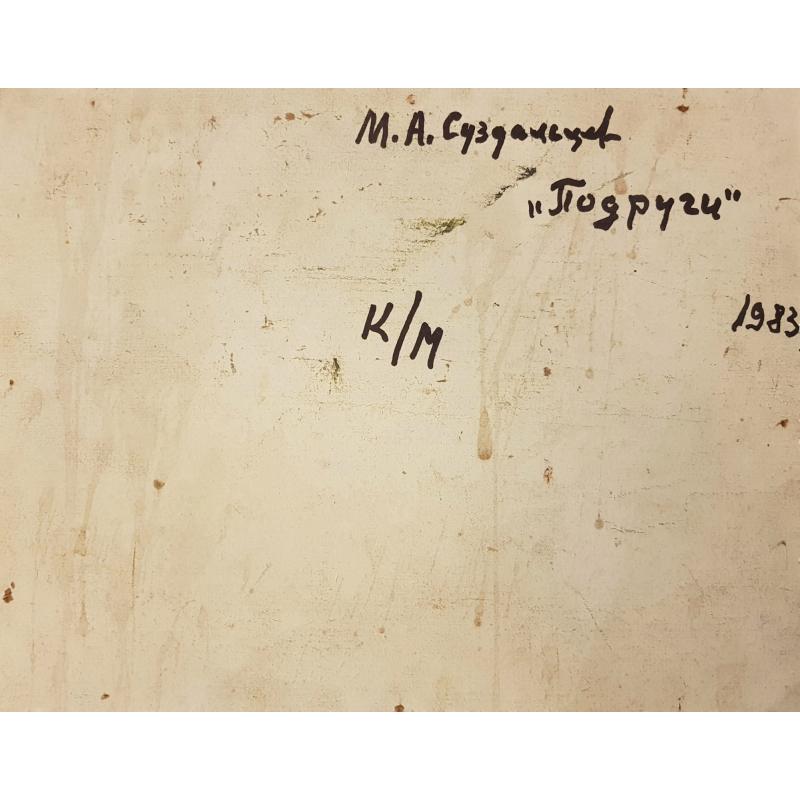 М. А. Суздальцев
"Подруги"
К/М
1983